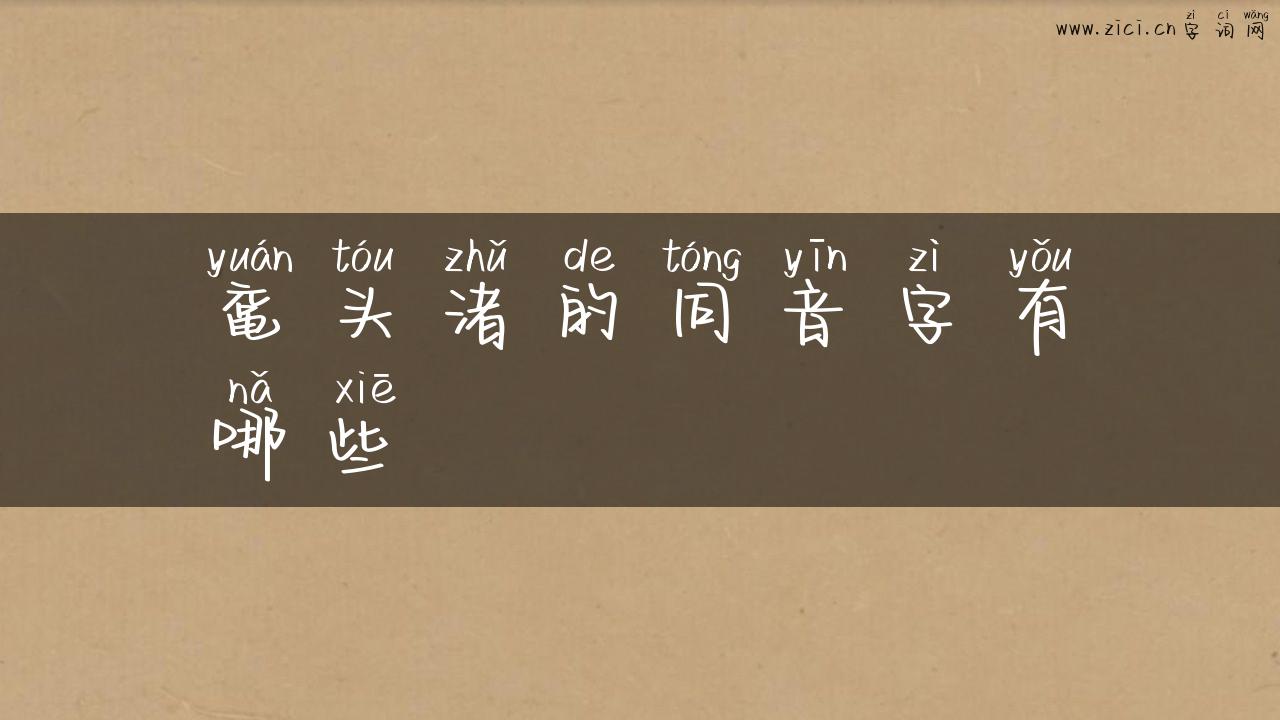 zì cí wǎng
www.zici.cn 字词网
yuán tóu zhǔ de tóng yīn zì yǒu
鼋头渚的同音字有
nǎ xiē
哪些